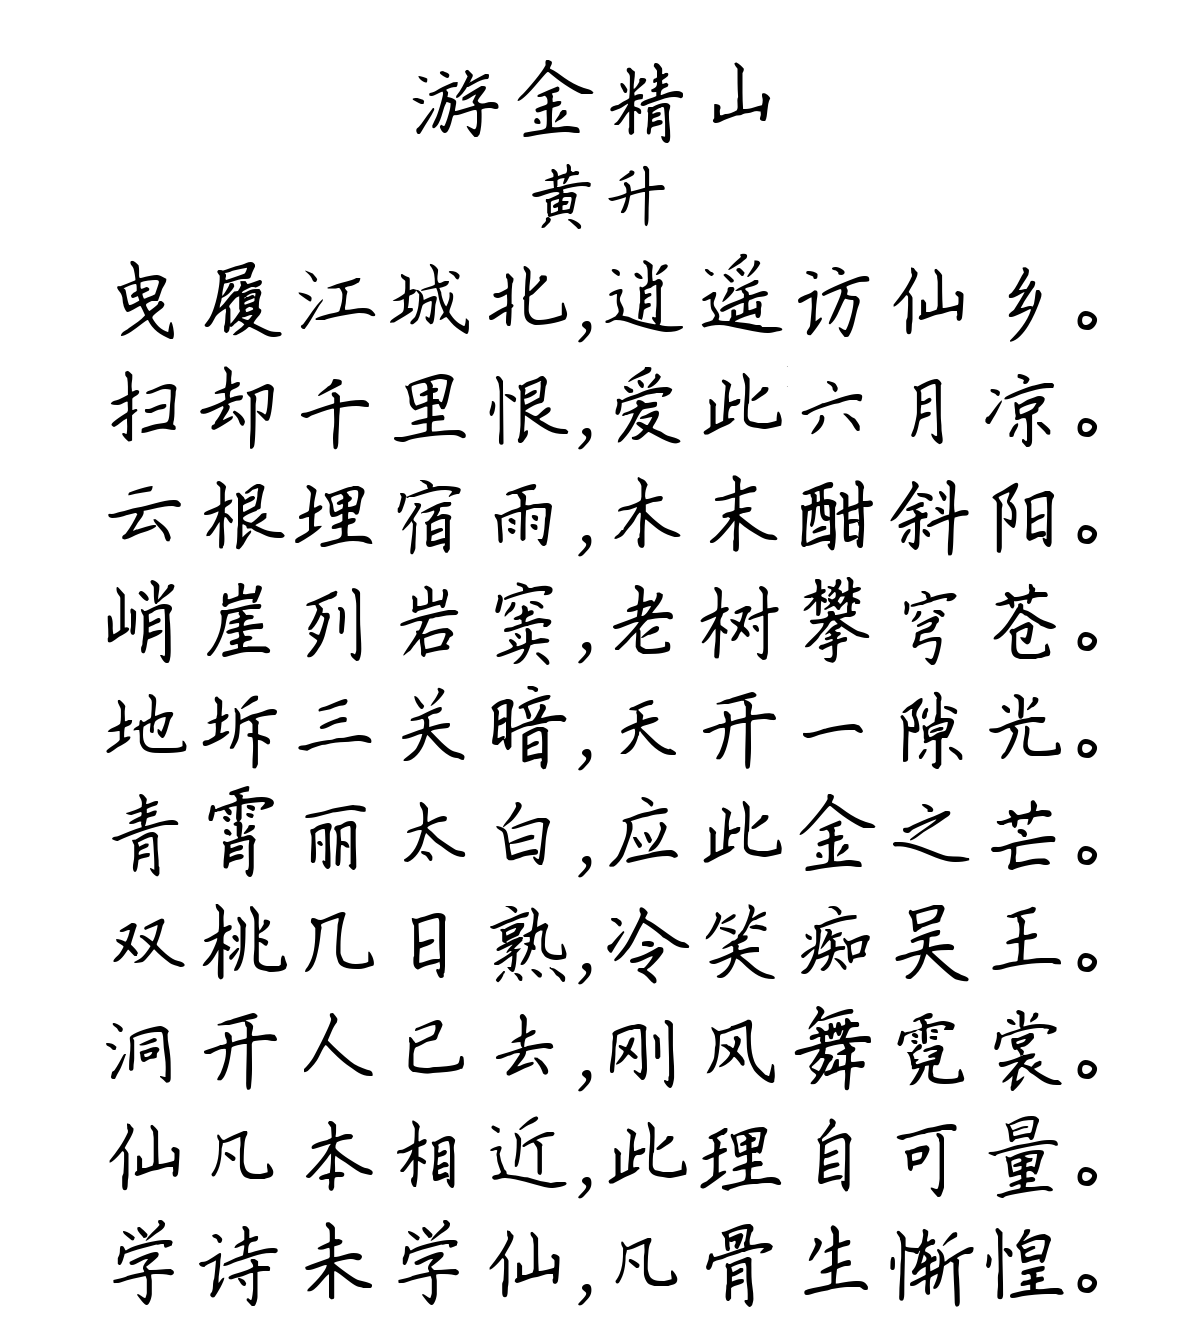 游金精山
黄升
曳履江城北,逍遥访仙乡。
扫却千里恨,爱此六月凉。
云根埋宿雨,木末酣斜阳。
峭崖列岩窦,老树攀穹苍。
地坼三关暗,天开一隙光。
青霄丽太白,应此金之芒。
双桃几日熟,冷笑痴吴王。
洞开人已去,刚风舞霓裳。
仙凡本相近,此理自可量。
学诗未学仙,凡骨生惭惶。